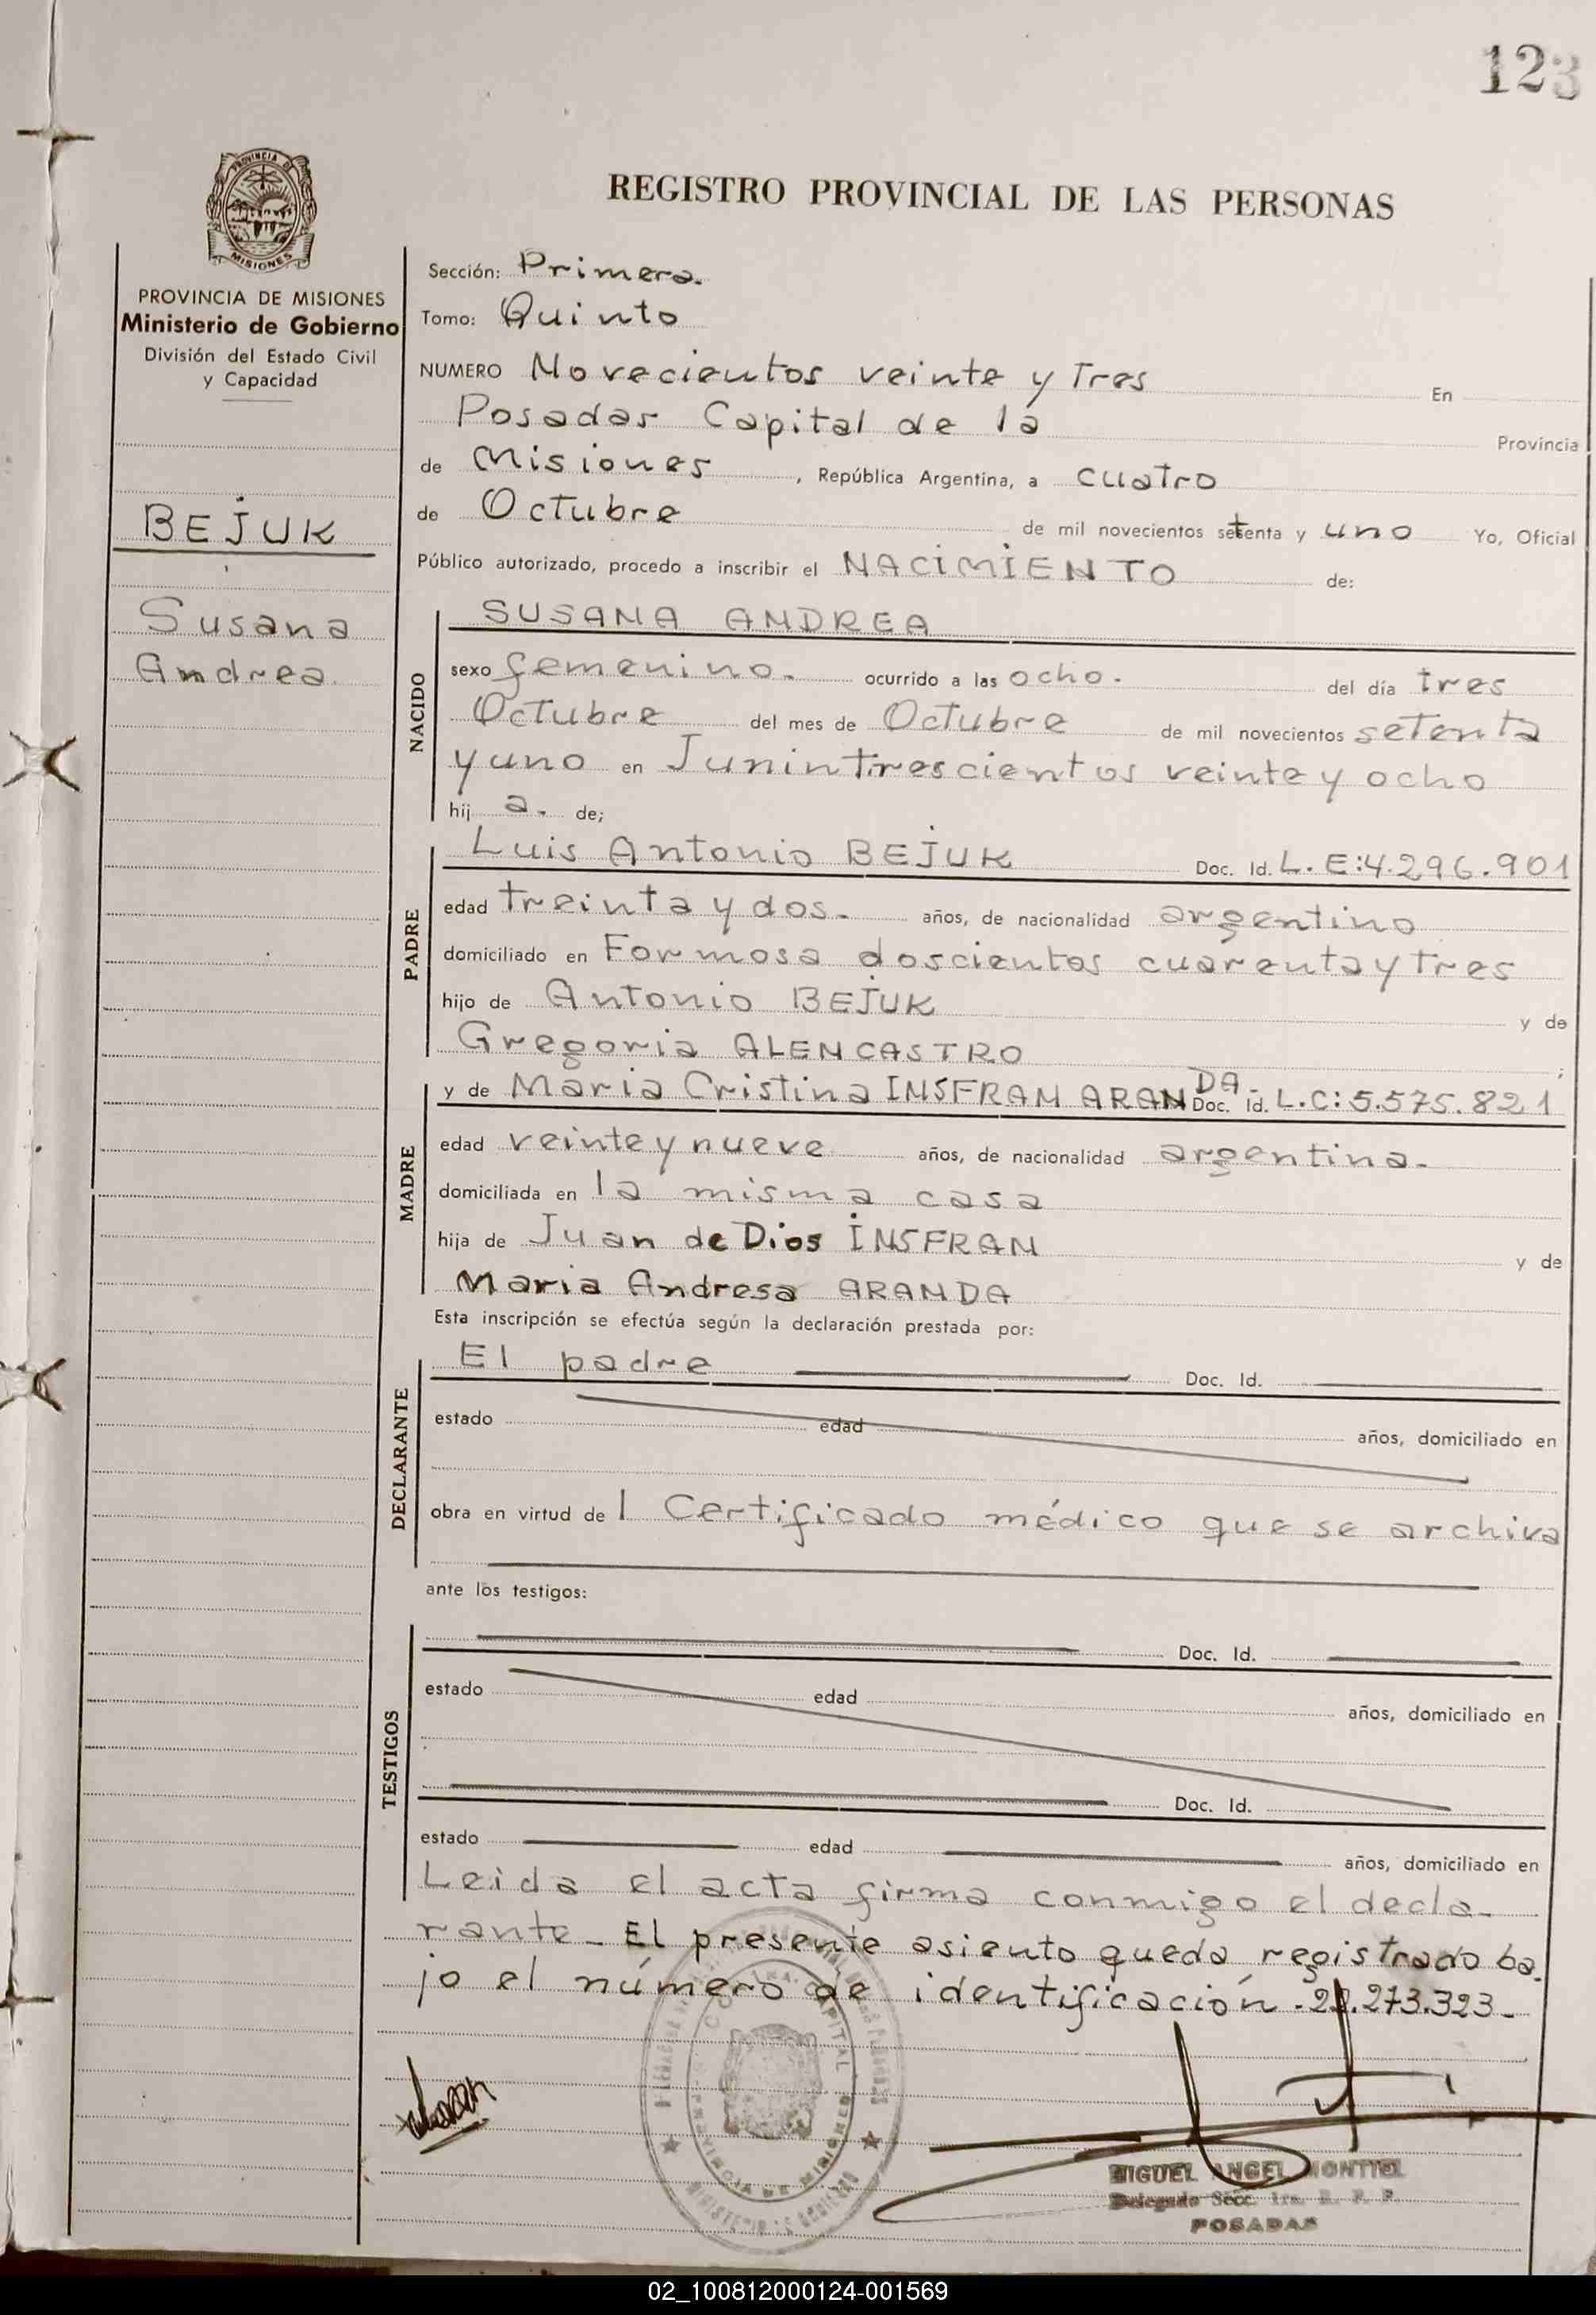 123
PROVINCIA DE
MISIONES
REGISTRO PROVINCIAL DE LAS PERSONAS
PROVINCIA DE MISIONES
Ministerio de Gobierno
División del Estado Civil
y Capacidad
BEJUK
Susana
Andrea.
Sección: Primera.
Tomo: Quinto
NUMERO Novecientos veinte y Tres En
Posadas Capital de la Provincia
de Misiones, República Argentina, a cuatro
de Octubre de mil novecientos setenta y uno Yo, Oficial
Público autorizado, procedo a inscribir el NACIMIENTO de:
NACIDO
SUSANA ANDREA
sexo femenino. ocurrido a las ocho. del día tres
Octubre del mes de Octubre de mil novecientos setenta
y uno en Junin trescientos veinte y ocho
hij a. de;
PADRE
Luis Antonio BEJUK Doc. Id. L.E:4.296.901
edad treinta y dos. años, de nacionalidad argentino
domiciliado en Formosa doscientos cuarenta y tres
hijo de Antonio BEJUK y de
Gregoria ALENCASTRO ;
MADRE
y de Maria Cristina INSFRAN ARANDA- Doc. Id. L.C:5.575.821
edad veinte y nueve años, de nacionalidad argentina.
domiciliada en la misma casa
hija de Juan de Dios INSFRAN y de
Maria Andresa ARANDA
Esta inscripción se efectúa según la declaración prestada por:
DECLARANTE
El padre Doc. Id.
estado edad años, domiciliado en
obra en virtud de l Certificado médico que se archiva
ante los testigos:
TESTIGOS
Doc. Id.
estado edad años, domiciliado en
Doc. Id.
estado edad años, domiciliado en
Leida el acta firma conmigo el decla-
rante- El presente asiento queda registrado ba-
jo el número de identificación -22.273.323-
MIGUEL ANGEL MONTIEL
Delegado Secc. 1ra. R. P. P.
POSADAS
02_100812000124-001569